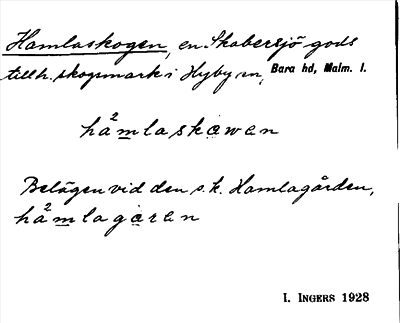 Hamlaskogen, en Skabersjö gods
tillh. skogsmark i Hyby sn, Bara hd, Malm. l.
hå²mlaskɷwen
Belägen vid den s.k. Hamlagården,
hå²mlagɷren
I. INGERS 1928